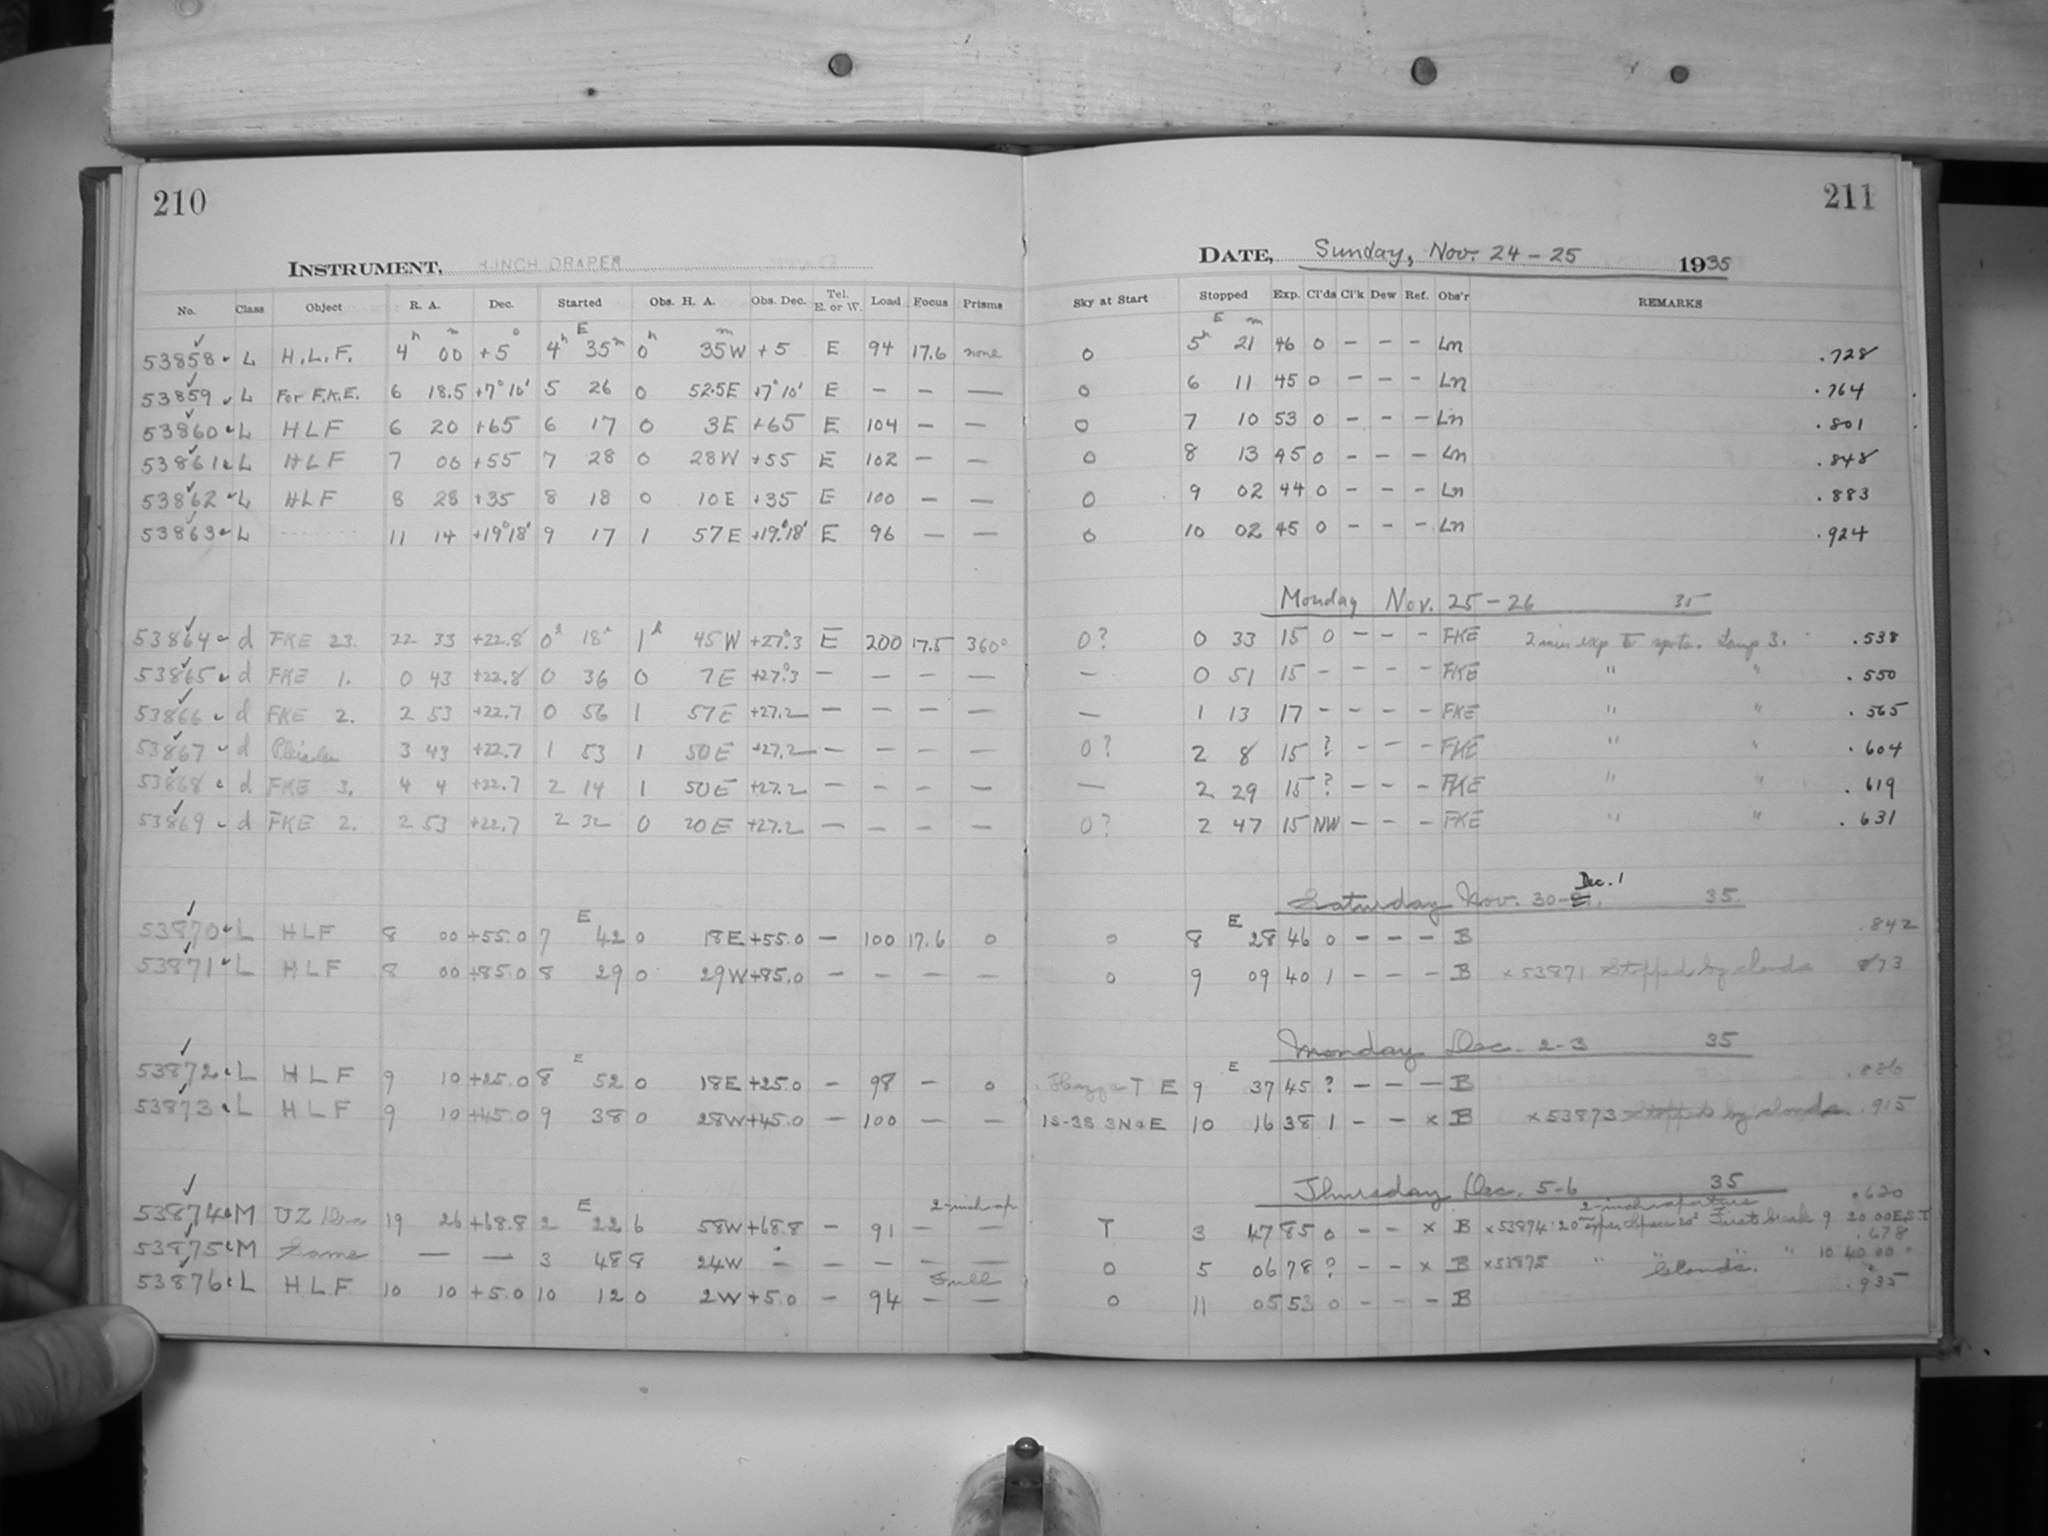 210
INSTRUMENT, 8 INCH DRAPER
No. Class Object R. A. Dec. Started Obs. H. A. Obs. Dec. Tel. E. or W. Load Focus Prisms
53858 L H.L.F. 4h 00m +5° 4h E 35m 0h 35mW +5 E 94 17.6 none
53859 L For F.K.E. 6 18.5 +7°10' 5 26 0 52.5E +7°10' E — — —
53860 L HLF 6 20 +65 6 17 0 3E +65 E 104 — —
53861 L HLF 7 00 +55 7 28 0 28W +55 E 102 — —
53862 L HLF 8 28 +35 8 18 0 10E +35 E 100 — —
53863 L 11 14 +19°18' 9 17 1 57E +19°18' E 96 — —
53864 d FKE 23. 22 33 +22.8 0h 18m 1h 45W +27°.3 E 200 17.5 360°
53865 d FKE 1. 0 43 +22.8 0 36 0 7E +27°.3 — — — —
53866 d FKE 2. 2 53 +22.7 0 56 1 57E +27.2 — — — —
53867 d Pleiades 3 43 +22.7 1 53 1 50E +27.2 — — — —
53868 d FKE 3. 4 4 +22.7 2 14 1 50E +27.2 — — — —
53869 d FKE 2. 2 53 +22.7 2 32 0 20E +27.2 — — — —
53870 L HLF 8 00 +55.0 7 E 42 0 18E +55.0 — 100 17.6 0
53871 L HLF 8 00 +85.0 8 29 0 29W +85.0 — — — —
53872 L HLF 9 10 +25.0 8 E 52 0 18E +25.0 — 98 — 0
53873 L HLF 9 10 +45.0 9 38 0 28W +45.0 — 100 — —
2-inch ap
53874 M UZ Dra 19 26 +68.8 2 E 22 6 58W +68.8 — 91 — —
53875 M Same — — 3 48 8 24W — — — — —
Full
53876 L HLF 10 10 +5.0 10 12 0 2W +5.0 — 94 — —
211
DATE, Sunday, Nov. 24-25 1935
Sky at Start Stopped Exp. Cl'ds Cl'k Dew Ref. Obs'r REMARKS
0 5h E 21m 46 0 — — — Ln .728
0 6 11 45 0 — — — Ln .764
0 7 10 53 0 — — — Ln .801
0 8 13 45 0 — — — Ln .848
0 9 02 44 0 — — — Ln .883
0 10 02 45 0 — — — Ln .924
Monday Nov. 25-26 35
0? 0 33 15 0 — — — FKE 2 min exp to spots. Lamp 3. .538
— 0 51 15 — — — — FKE " " .550
— 1 13 17 — — — — FKE " " .565
0? 2 8 15 ? — — — FKE " " .604
— 2 29 15 ? — — — FKE " " .619
0? 2 47 15 NW — — — FKE " " .631
Saturday Nov. 30- Dec. 1 35.
0 8 E 28 46 0 — — — B .842
0 9 09 40 1 — — — B x 53871 Stopped by clouds 873
Monday Dec. 2-3 35
Hazy T E 9 E 37 45 ? — — — B .886
1S-3S 3N&E 10 16 38 1 — — x B x 53873 Stopped by clouds .915
Thursday Dec. 5-6 35
2-inch aperture .620
T 3 47 85 0 — — x B x53874: 20 First break 9 20 00 EST
.678
0 5 06 78 ? — — x B x53875 " "Clouds". " 10 40 00 "
0 11 05 53 0 — — — B .935